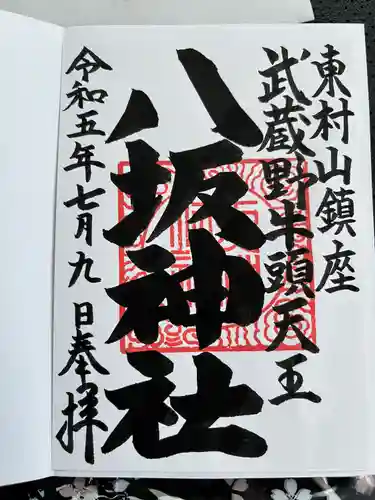 東村山鎮座
武蔵野牛頭天王
八坂神社
令和五年七月九日奉拝